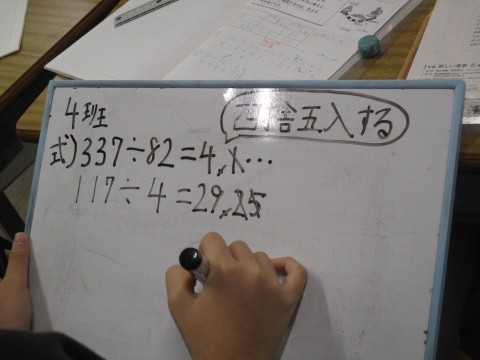 4班
四捨五入する
式)337÷82=4.1…
117÷4=29.25